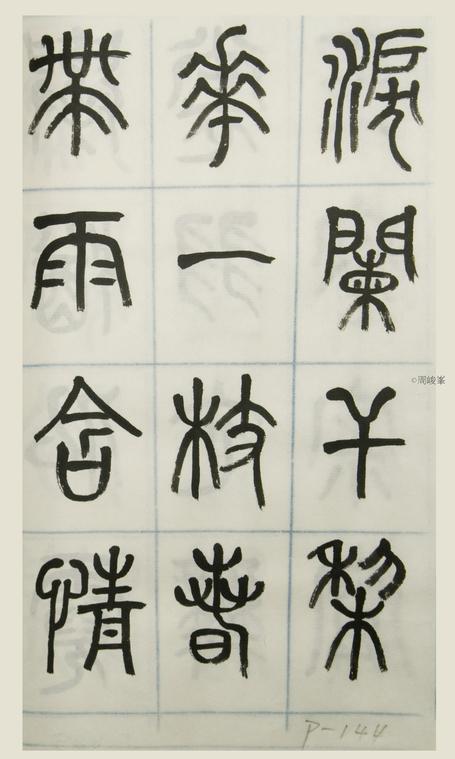 淚闌干棃
華一枝春
帶雨含情
©周峻峯
P-144